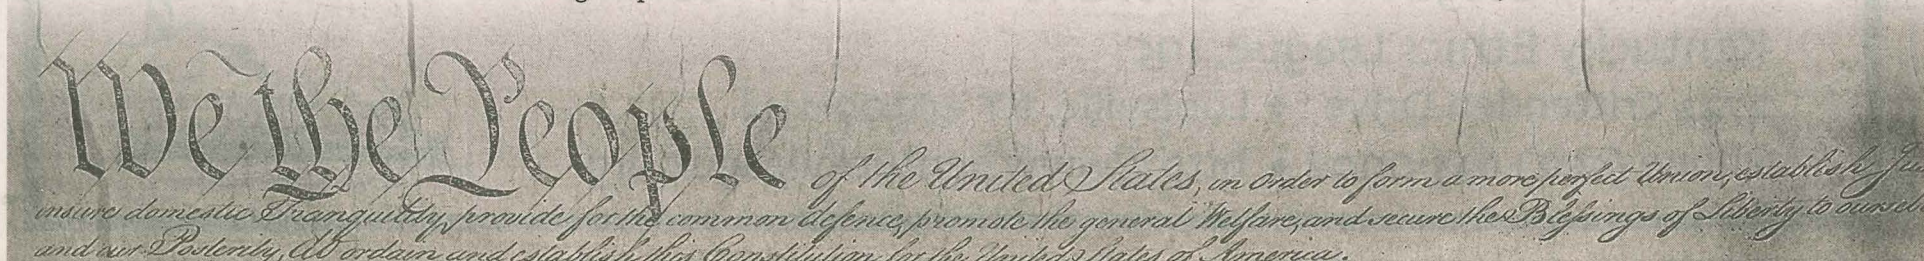 We the People of the United States, in Order to form a more perfect Union, establish Jus
insure domestic Tranquility, provide for the common defence, promote the general Welfare, and secure the Blessings of Liberty to oursel
and our Posterity, do ordain and establish this Constitution for the United States of America.